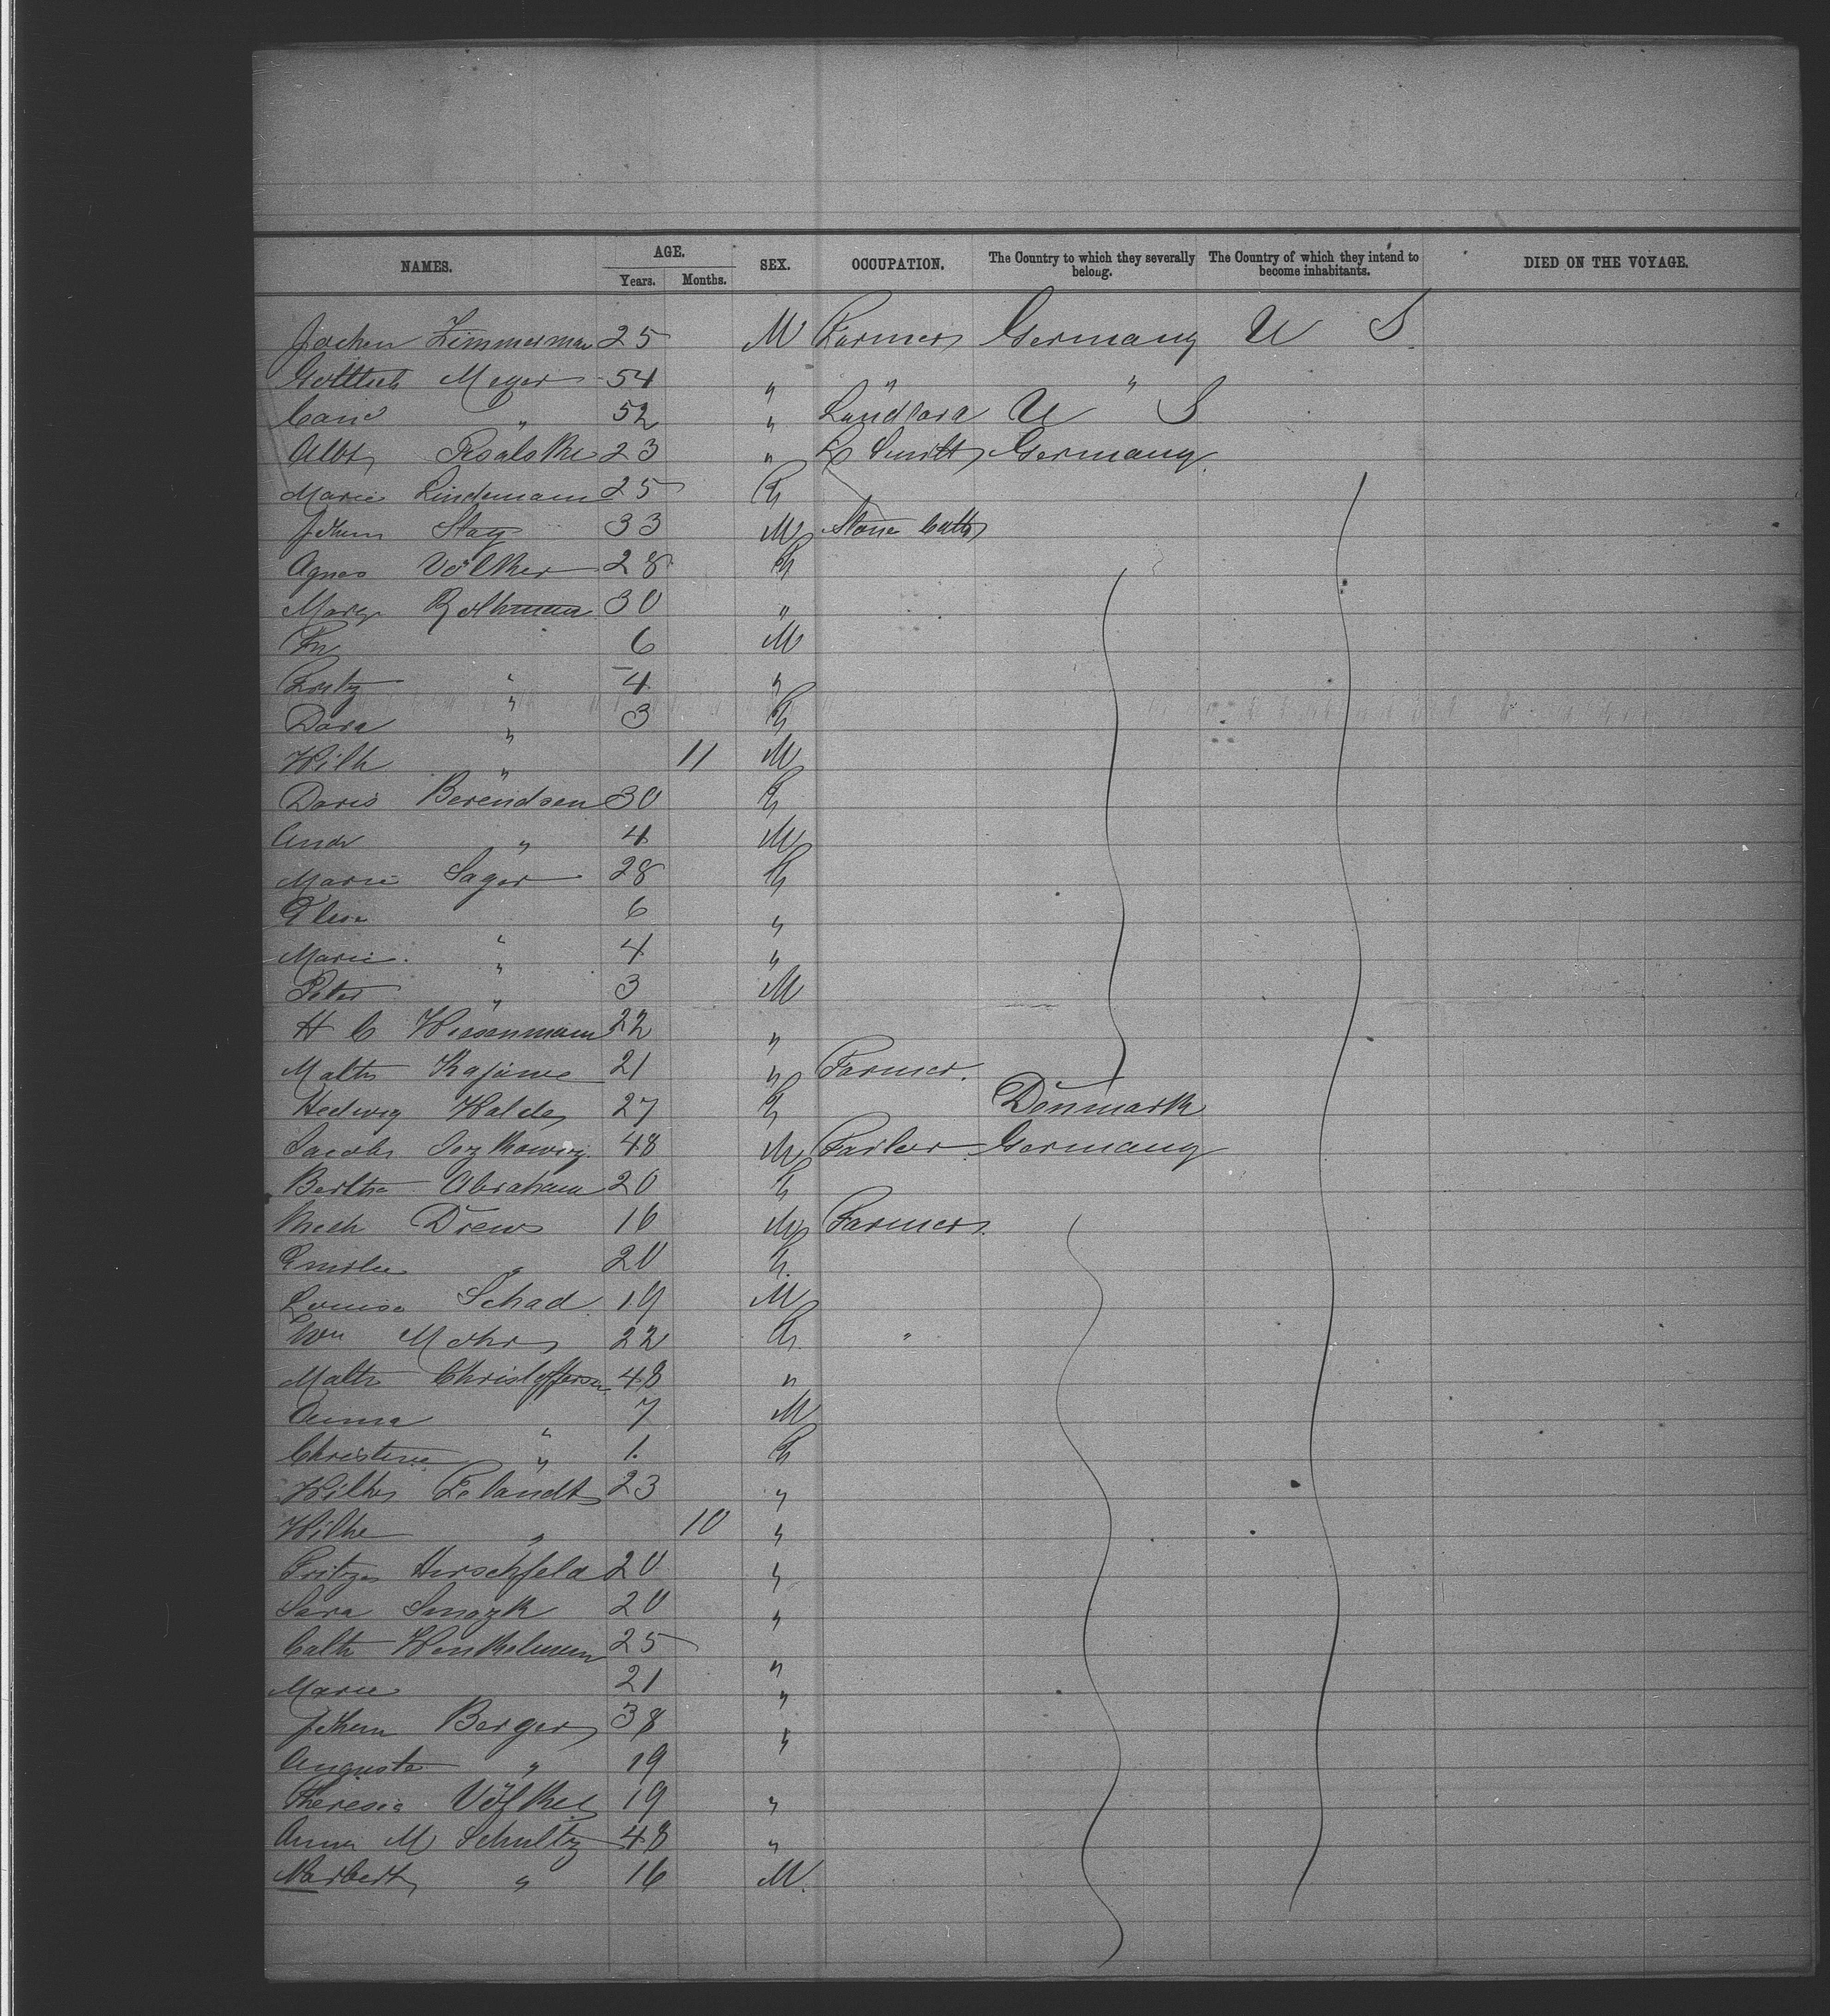 NAMES. AGE. Years. Months. SEX. OCCUPATION. The Country to which they severally belong. The Country of which they intend to become inhabitants. DIED ON THE VOYAGE.
Jochen Zimmerman 25 M Farmer Germany U S
Gottlieb Meyer 54 " " "
" 52 " Landlord U S
Albt 23 " Smith Germany
Marie Lindemann 25 F
Johann Stag 33 M Stone Cutter
Agnes Völker 28 F
Mary 30 "
Fr 6 M
Fritz " 4 "
Dora " 3 F
Wilh " 11 M
Doris Berendsen 30 F
Andr " 4 M
Marie Sager 28 F
Elise 6 "
Marie " 4 "
Peter " 3 M
H C Wiesenmann 22 "
21 " Farmer
Hedwig 27 F Denmark
Jacob 48 M Germany
Bertha Abraham 20 F
Drews 16 M Farmer
Emilie " 20 F
Louise Schad 19 M
Wm Mohr 22 F "
Christofferson 48 "
Anna " 7 M
Christine " 1 F
23 "
" 10 "
Hirschfeld 20 "
Sara 20 "
Cath 25 "
Marie 21 "
Johann Berger 38 "
Auguste " 19
Theresia Völkel 19 "
Anna M Schultz 48 "
Norbert " 16 M